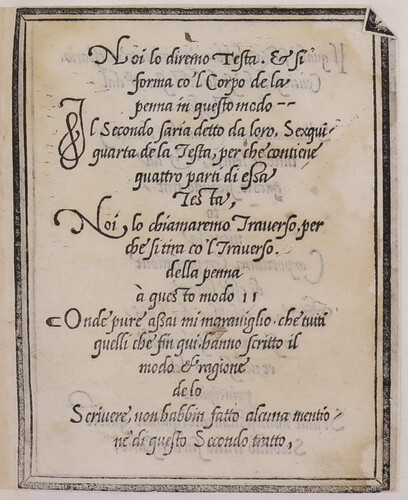 Noi lo diremo Testa. & si
forma co'l Corpo de la
penna in questo modo --
Il Secondo saria detto da loro, Sexqui
quarta de la Testa, per che contiene
quattro parti di essa
Testa,
Noi, lo chiamaremo Traverso, per
che si tira co'l Traverso.
della penna
à questo modo ıı
Onde pure assai mi meraviglio, che tuti
quelli che fin qui, hanno scritto il
modo & ragione
de lo
Scrivere, non habbin fatto alcuna mentio
ne di questo Secondo tratto,